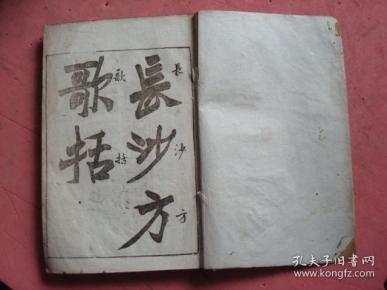 長沙方
長沙方
歌括
歌括
孔夫子旧书网
www.kongfz.com